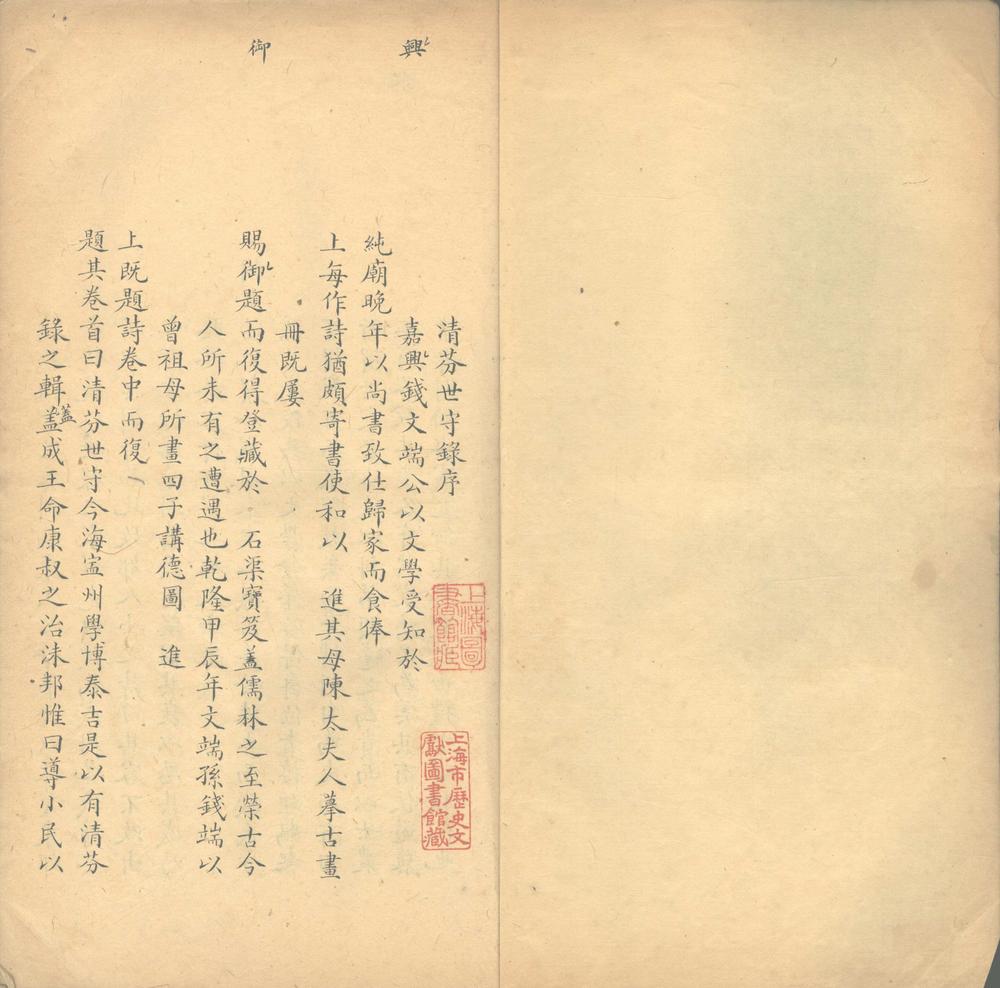 興
御
清芬世守錄序
嘉興錢文端公以文學受知於
純廟晚年以尚書致仕歸家而食俸
上每作詩猶頗寄書使和以 進其母陳太夫人摹古畫
冊既屢
賜御題而復得登藏於 石渠寶笈蓋儒林之至榮古今
人所未有之遭遇也乾隆甲辰年文端孫錢端以
曾祖母所畫四子講德圖 進
上既題詩卷中而復
題其卷首曰清芬世守今海寍州學博泰吉是以有清芬
錄之輯蓋成王命康叔之治沬邦惟曰導小民以
蓋
上海圖書館藏
上海市歷史文獻圖書館藏